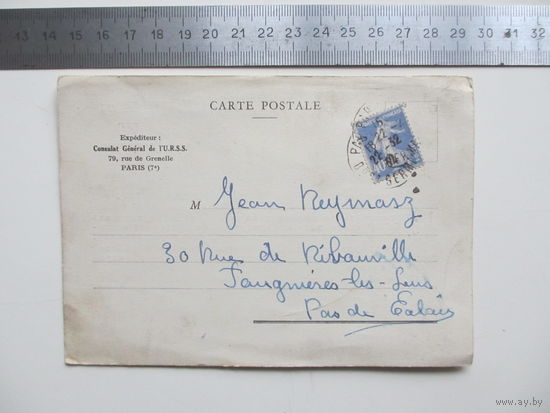 13 14 15 16 17 18 19 20 21 22 23 24 25 26 27 28 29 30 31 32
CARTE POSTALE
Expéditeur :
Consulat Général de l'U.R.S.S.
79, rue de Grenelle
PARIS (7e)
M Jean Reymasz
30 Rue de Ribauvillé
Fouquières-les-Lens
Pas de Calais
www.ay.by